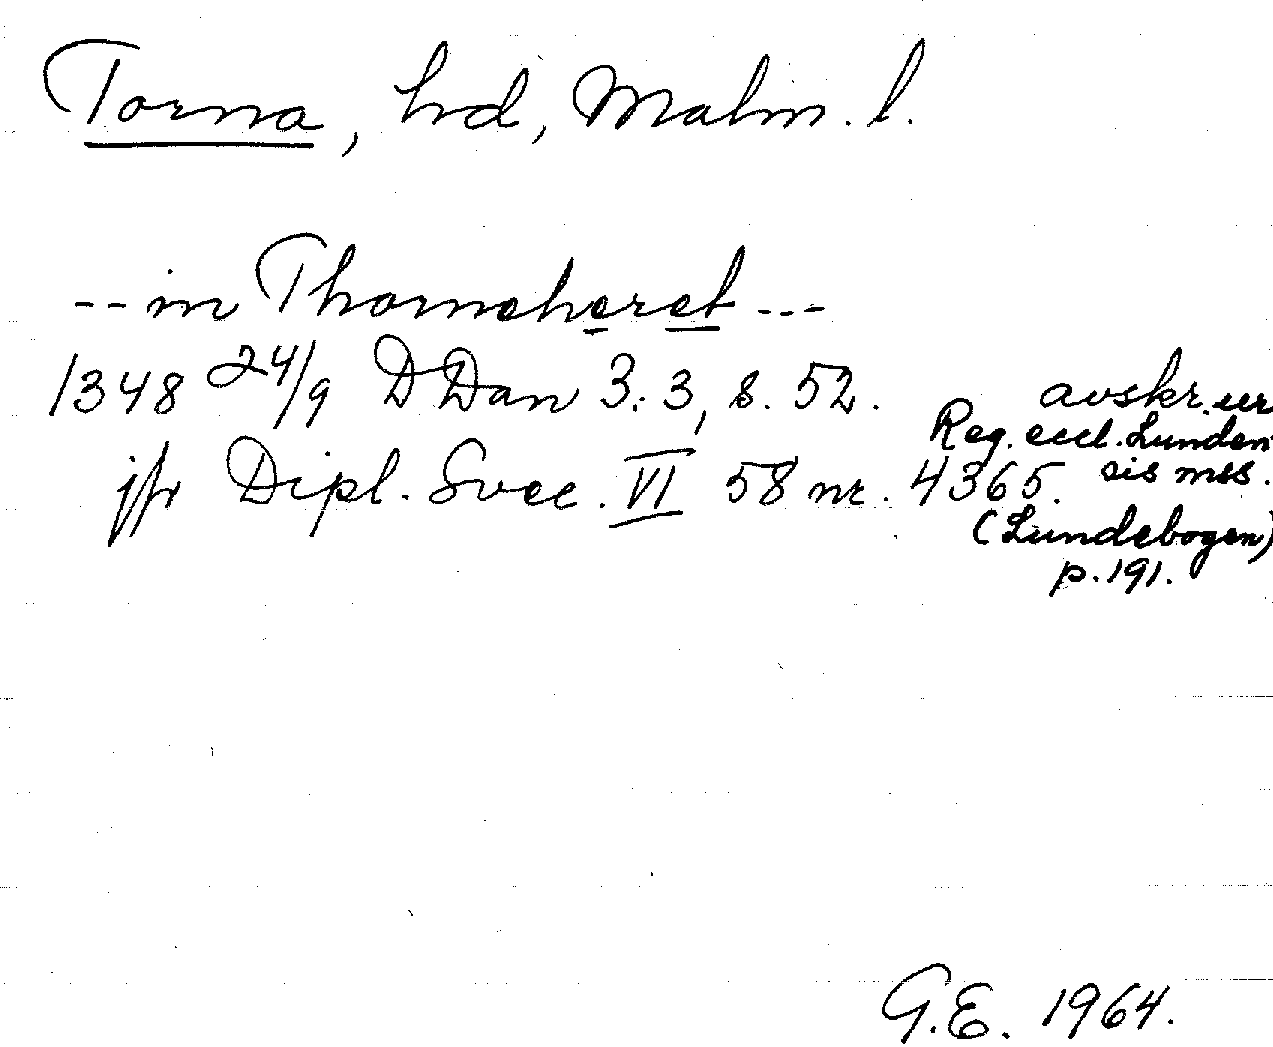 Torna, hd, Malm. l.
-- in Thorneheret ---
1348 24/9 DDan 3:3, s. 52.
jfr Dipl. Svec. VI 58 nr. 4365.
avskr. ur
Reg. eccl. Lunden
sis mss.
(Lundebogen)
p. 191.
G.E. 1964.